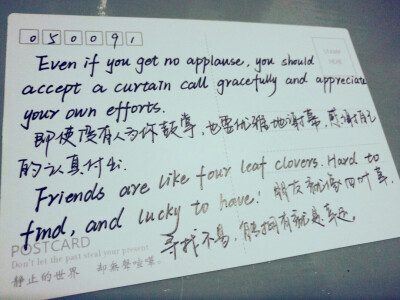 050091
Even if you get no applause, you should
accept a curtain call gracefully and appreciate
your own efforts.
即使没有人为你鼓掌，也要优雅地谢幕，感谢自己
的认真付出.
Friends are like four leaf clovers. Hard to
find, and lucky to have! 朋友就像四叶草，
寻找不易，能拥有就是幸运.
POSTCARD
Don't let the past steal your present
静止的世界 却無聲喧嚷。